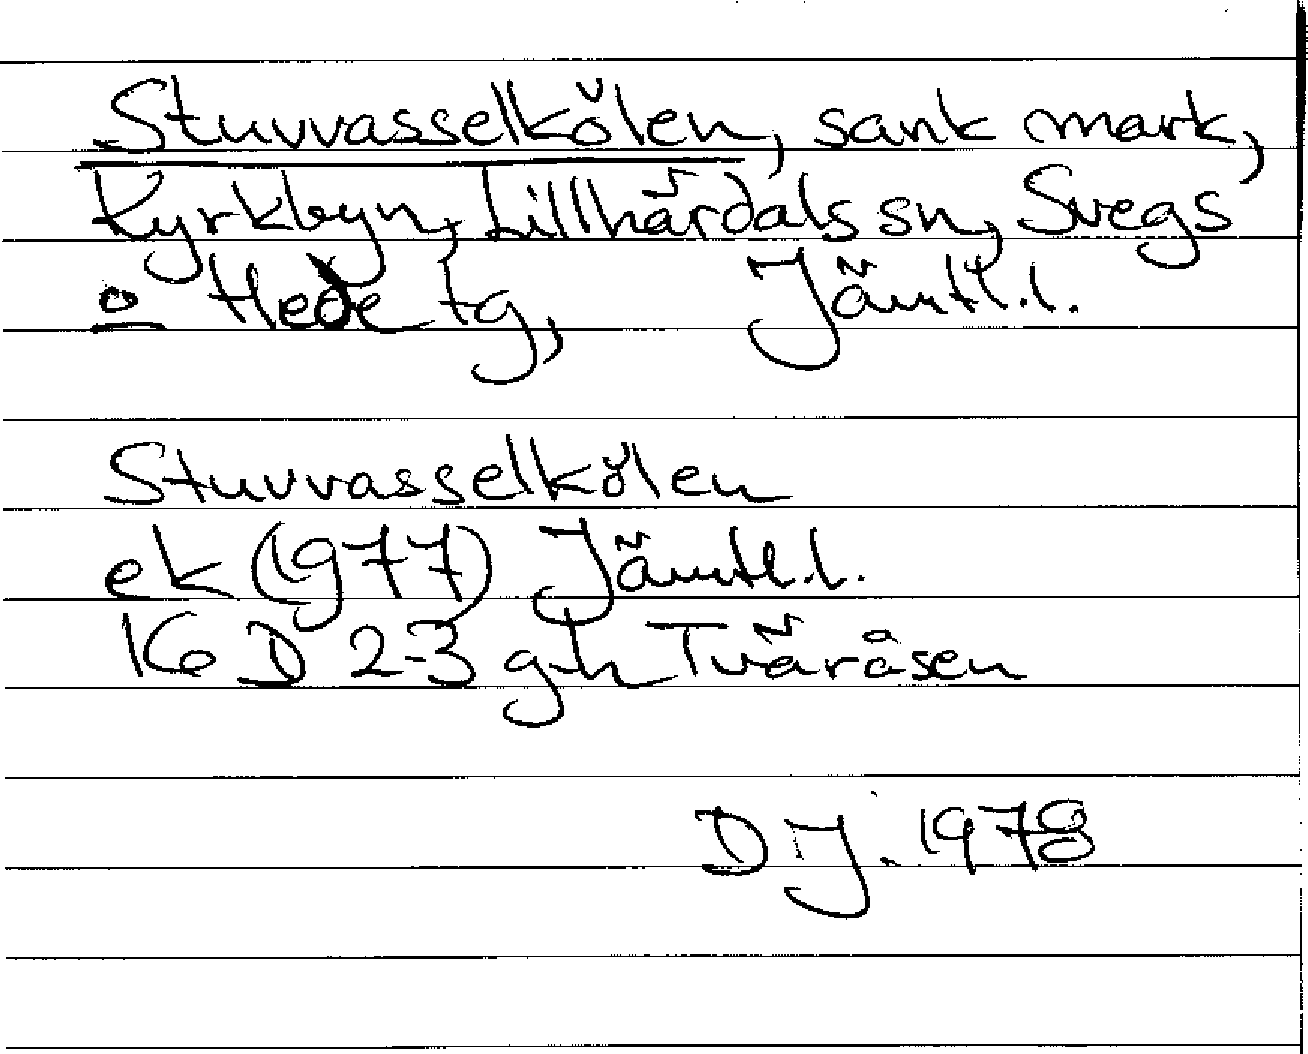 Stuvvasselkölen, sank mark,
Kyrkbyn, Lillhärdals sn, Svegs
o Hede tg, Jämtl. l.
Stuvvasselkölen
ek (1977) Jämtl. l.
16 D 2-3 g-h Tväråsen
DJ. 1978